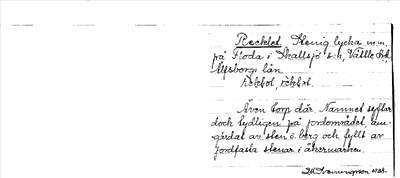 Recklet. Stenig lycka m.m.
på Floda i Skallsjö s:n, Vättle hd
Älfsborgs län.
röbbol, röbbol.
Även torp där. Namnet syftar
dock tydligen på jordområdet, om-
gärdat av sten o. berg och fyllt av
jordfasta stenar i åkermarken.